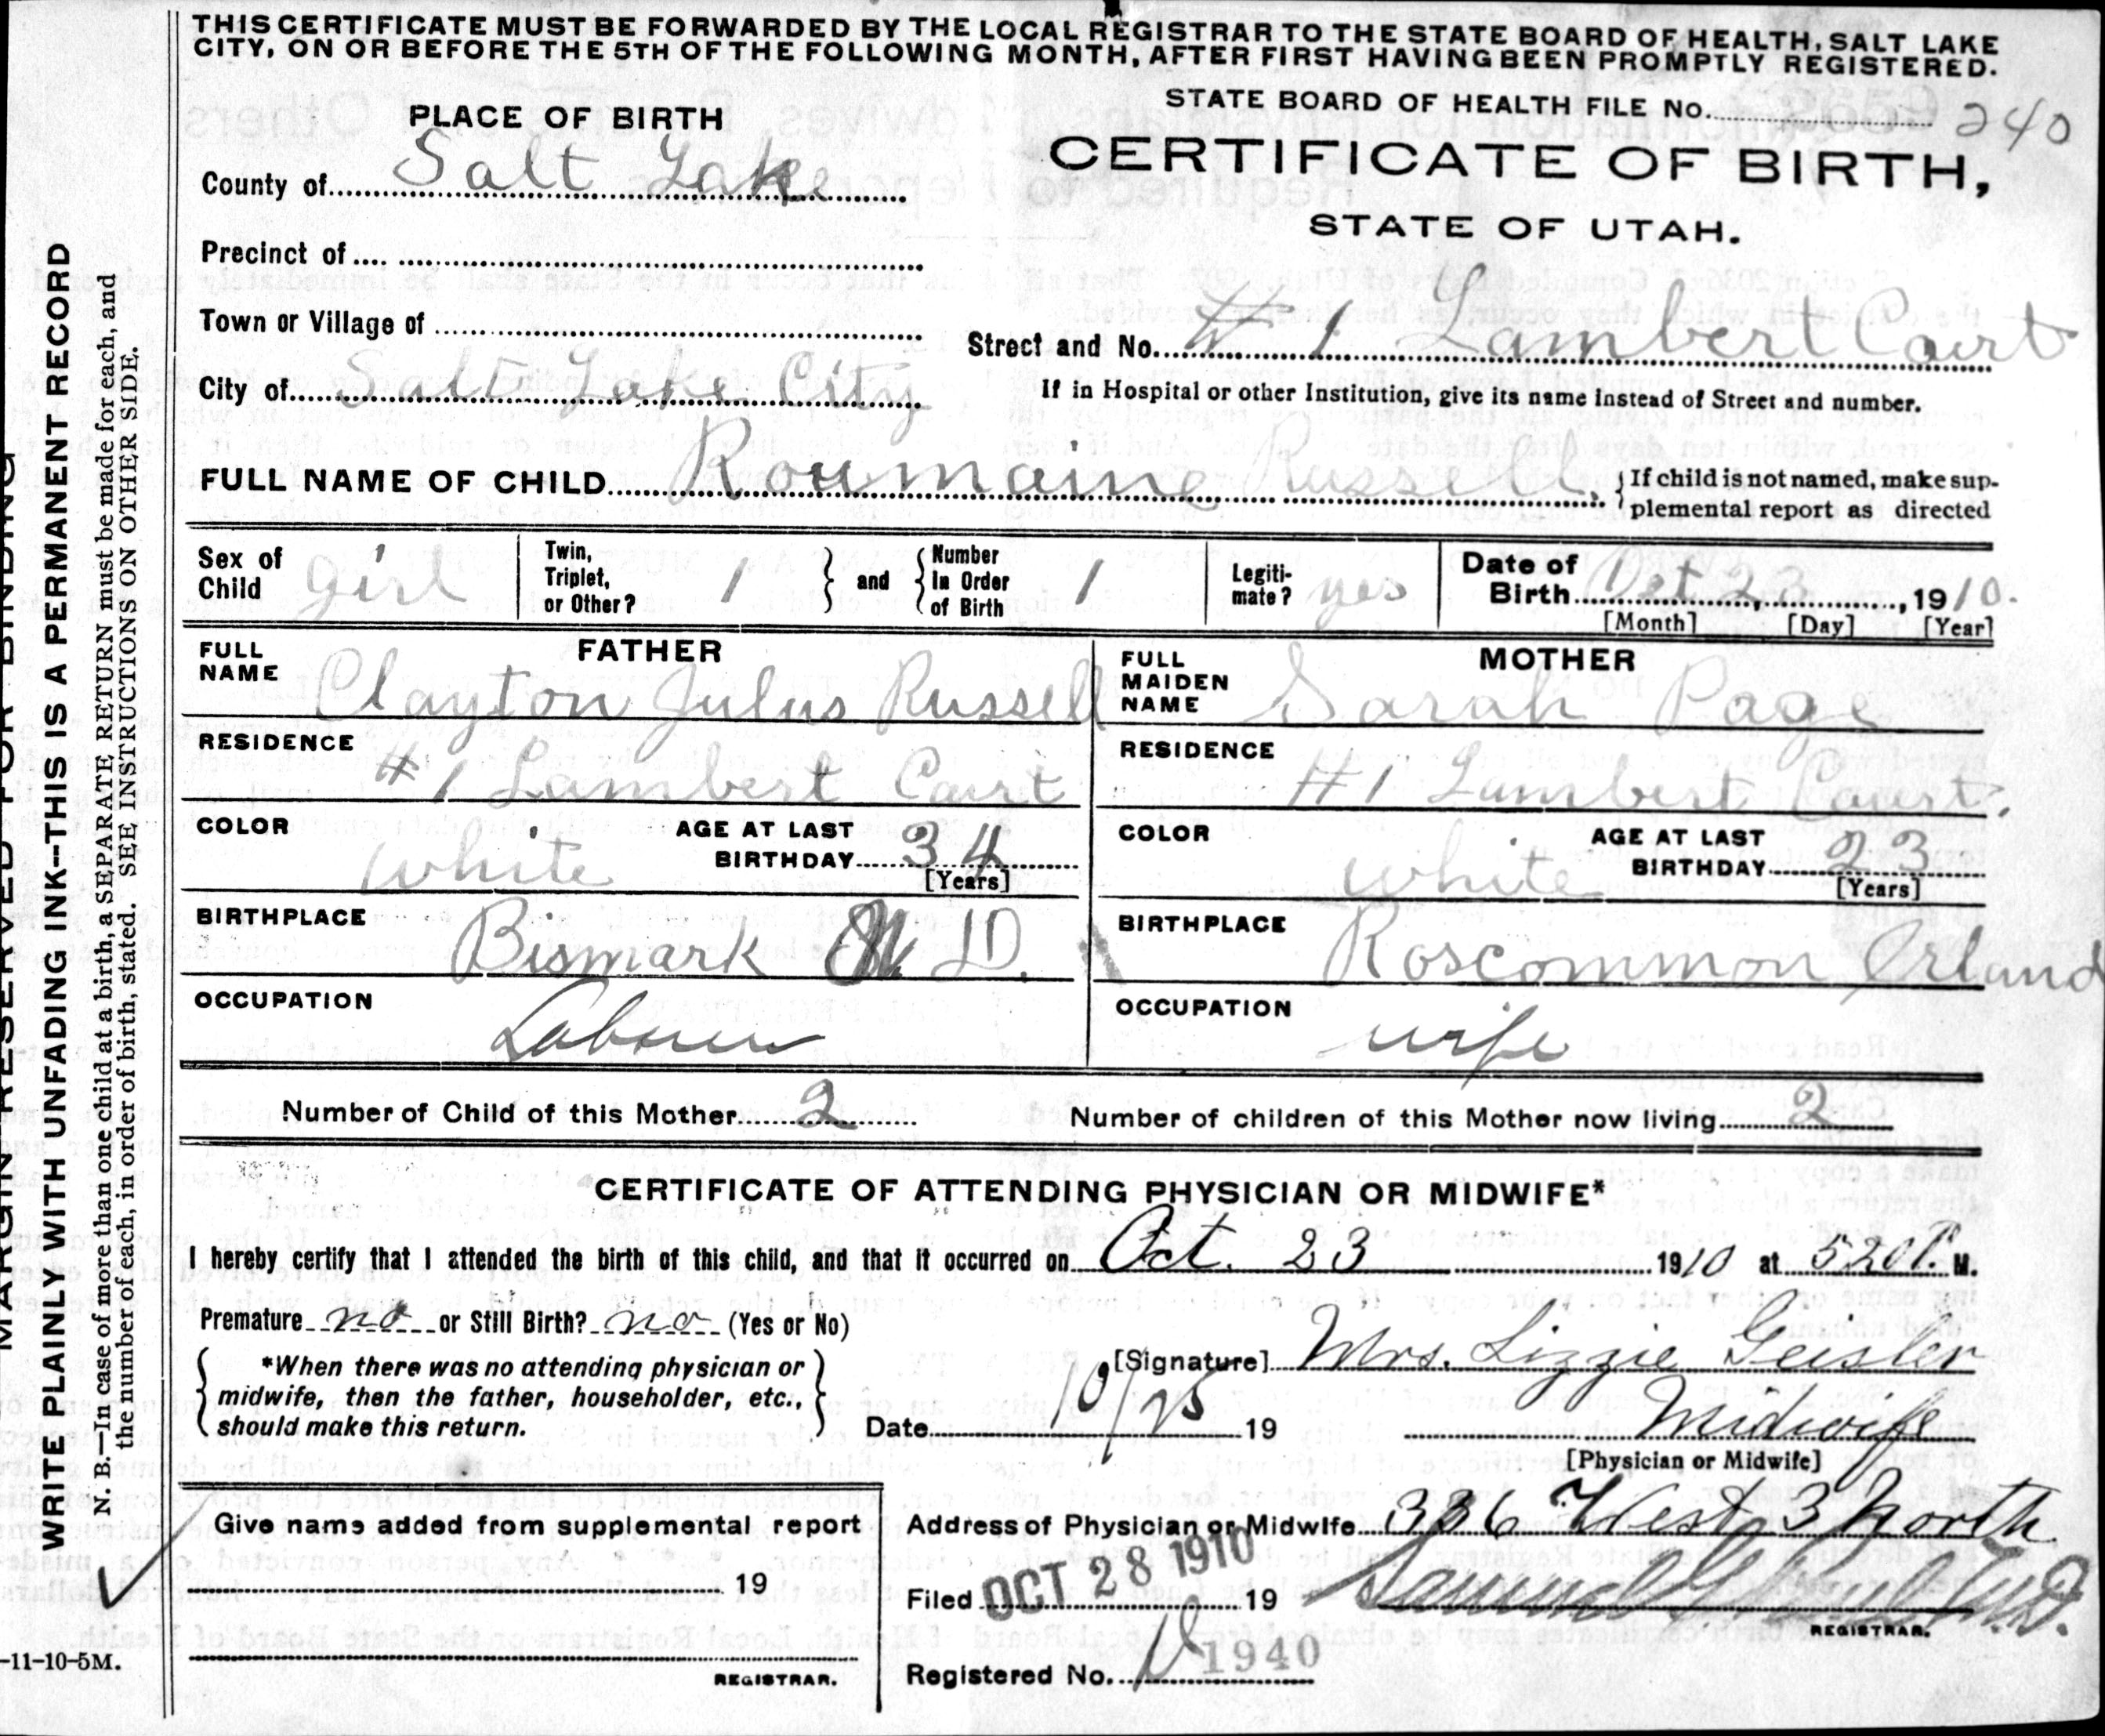 THIS CERTIFICATE MUST BE FORWARDED BY THE LOCAL REGISTRAR TO THE STATE BOARD OF HEALTH, SALT LAKE
CITY, ON OR BEFORE THE 5TH OF THE FOLLOWING MONTH, AFTER FIRST HAVING BEEN PROMPTLY REGISTERED.
STATE BOARD OF HEALTH FILE No. 240
CERTIFICATE OF BIRTH,
STATE OF UTAH.
PLACE OF BIRTH
County of Salt Lake
Precinct of
Town or Village of
City of Salt Lake City
Street and No. # 1 Lambert Court
If in Hospital or other Institution, give its name instead of Street and number.
FULL NAME OF CHILD Roumaine Russell.
{If child is not named, make sup-
plemental report as directed
Sex of Child girl
Twin, Triplet, or Other? 1 } and { Number in Order of Birth 1
Legiti-mate? yes
Date of Birth Oct 23, 1910.
[Month] [Day] [Year]
FATHER
FULL NAME Clayton Julus Russell
RESIDENCE #1 Lambert Court
COLOR white
AGE AT LAST BIRTHDAY 34
[Years]
BIRTHPLACE Bismark N D.
OCCUPATION Laborer
MOTHER
FULL MAIDEN NAME Sarah Page
RESIDENCE #1 Lambert Court.
COLOR white
AGE AT LAST BIRTHDAY 23
[Years]
BIRTHPLACE Roscommon Irland
OCCUPATION wife
Number of Child of this Mother 2
Number of children of this Mother now living 2
CERTIFICATE OF ATTENDING PHYSICIAN OR MIDWIFE*
I hereby certify that I attended the birth of this child, and that it occurred on Oct. 23 1910 at 520 P. M.
Premature no or Still Birth? no (Yes or No)
{*When there was no attending physician or
midwife, then the father, householder, etc.,
should make this return.}
[Signature] Mrs. Lizzie Geisler
Date 10/25 19
Midwife
[Physician or Midwife]
Give name added from supplemental report
19
REGISTRAR.
Address of Physician or Midwife 336 West 3 North
Filed OCT 28 1910 19
Samuel G. Paul M.D.
REGISTRAR.
Registered No. 1940
MARGIN RESERVED FOR BINDING
WRITE PLAINLY WITH UNFADING INK--THIS IS A PERMANENT RECORD
N. B.—In case of more than one child at a birth, a SEPARATE RETURN must be made for each, and
the number of each, in order of birth, stated. SEE INSTRUCTIONS ON OTHER SIDE.
-11-10-5M.